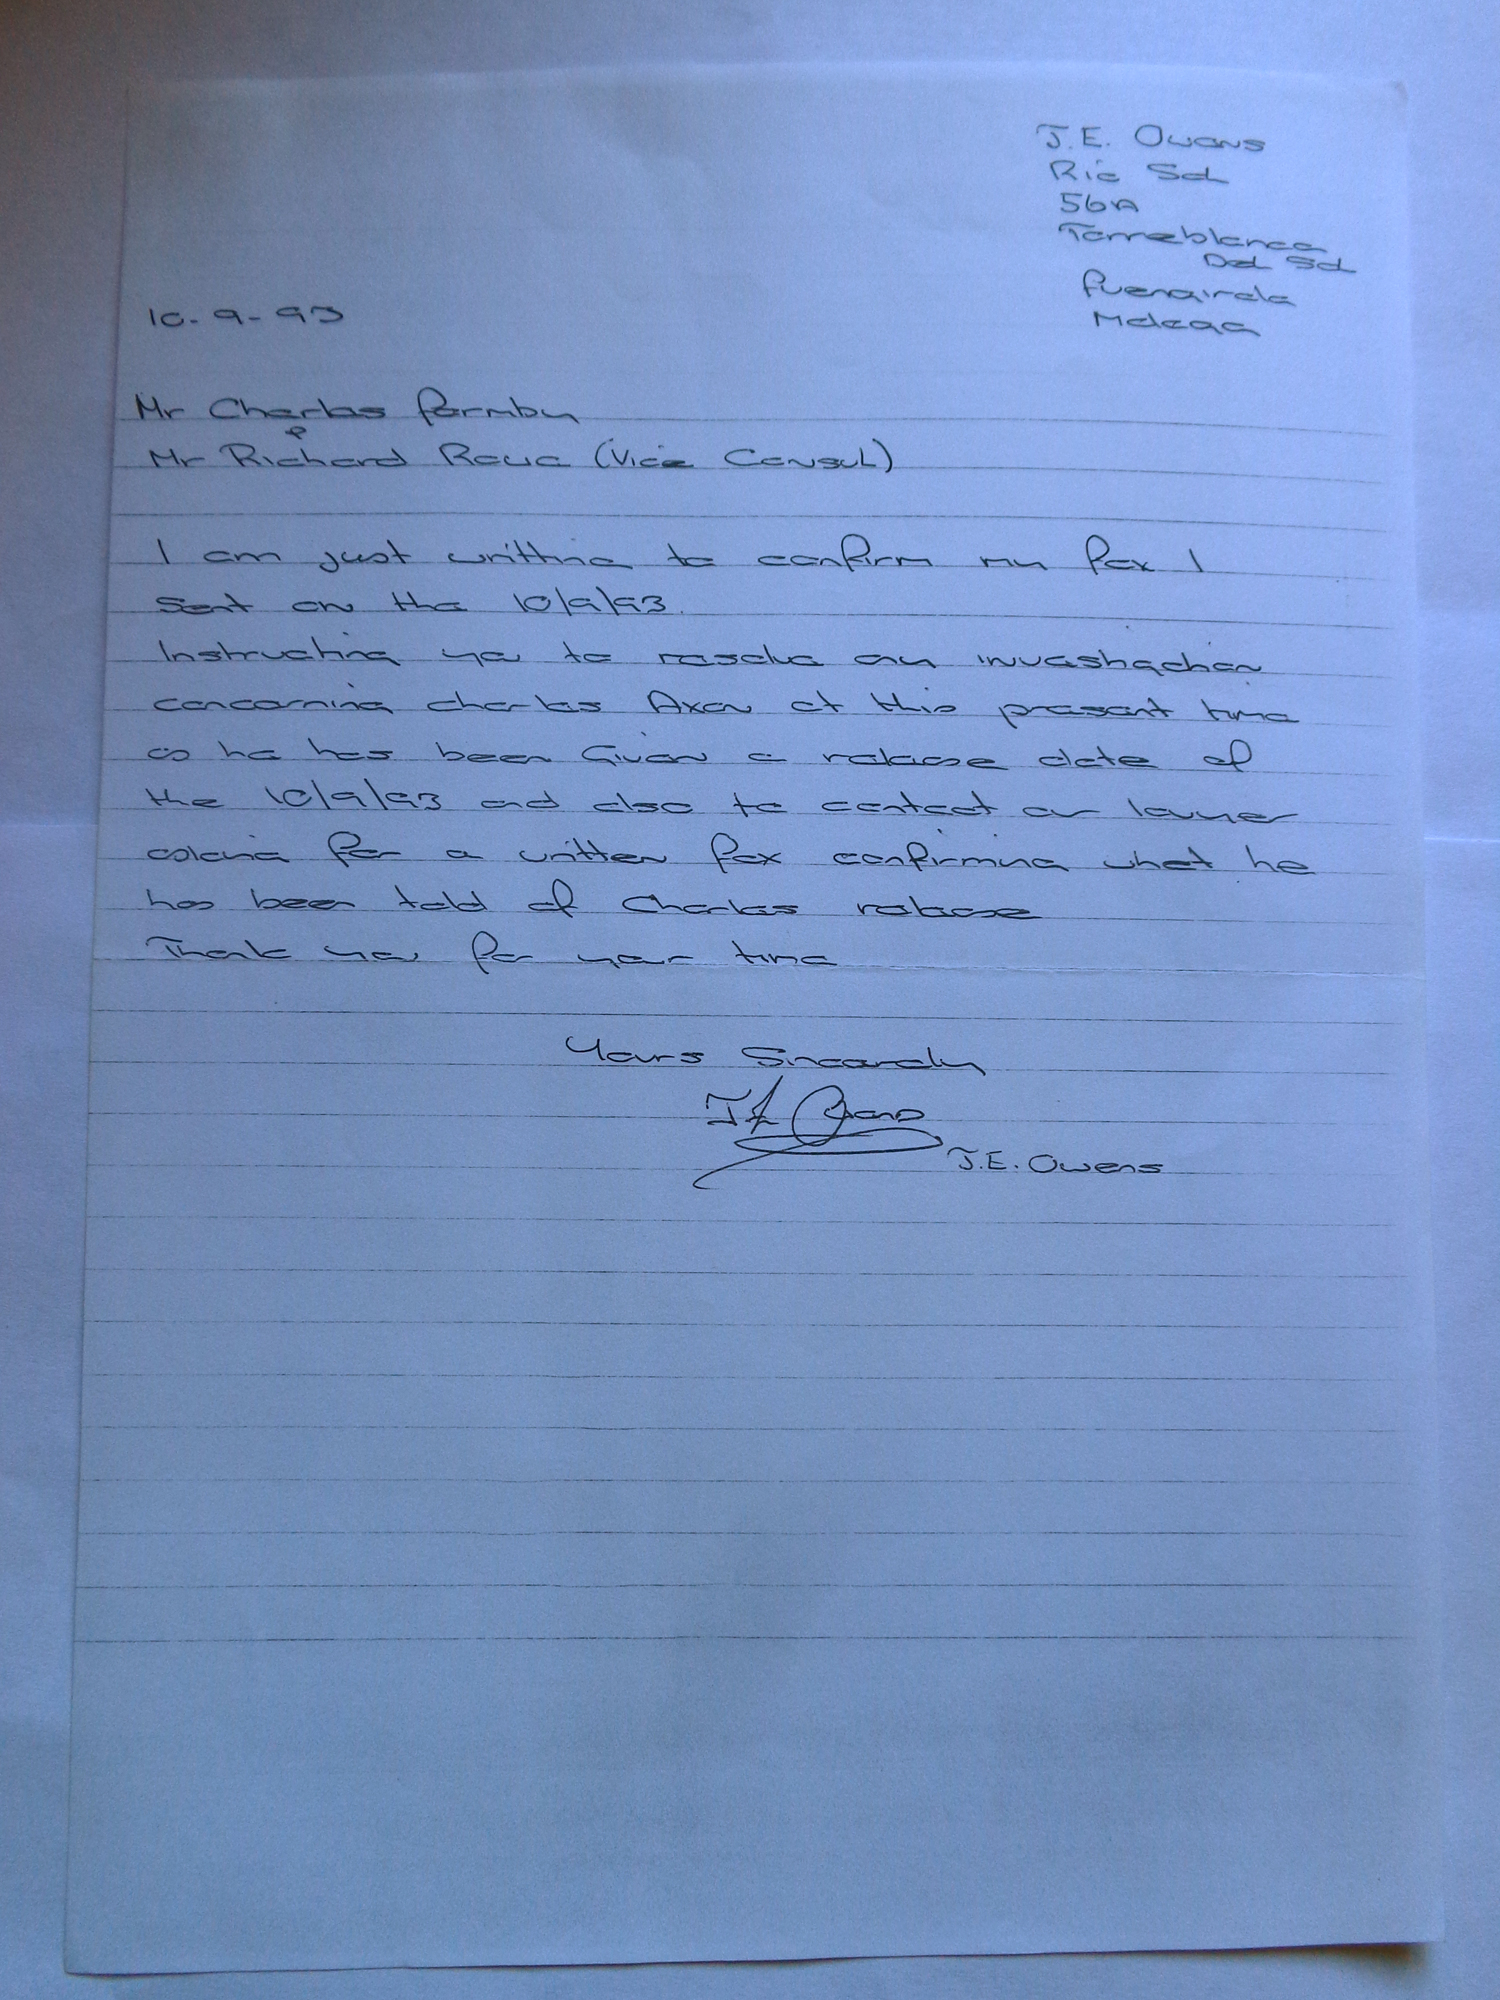 J.E. Owens
Rio Sol
56A
Torreblanca
Del Sol
Fuengirola
Malaga
10-9-93
Mr Charles Formby
&
Mr Richard (Vice Consul)
I am just writting to confirm my fax I
sent on the 10/9/93.
Instructing you to any investigation
concerning Charles at this present time
as he has been Given a release date of
the 10/9/93 and also to contact our lawyer
for a written fax confirming what he
has been told of Charles release
Thank you for your time
Yours Sincerely
J E Owens
J.E. Owens